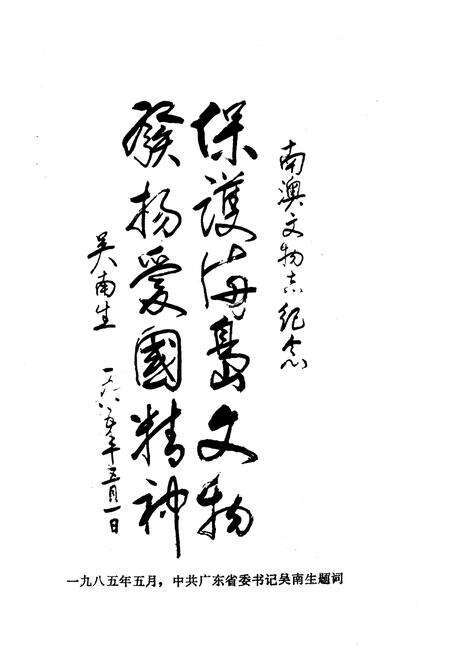 南澳文物志纪念
保護海島文物
發扬愛國精神
吴南生
一九八五年五月一日
一九八五年五月，中共广东省委书记吴南生题词